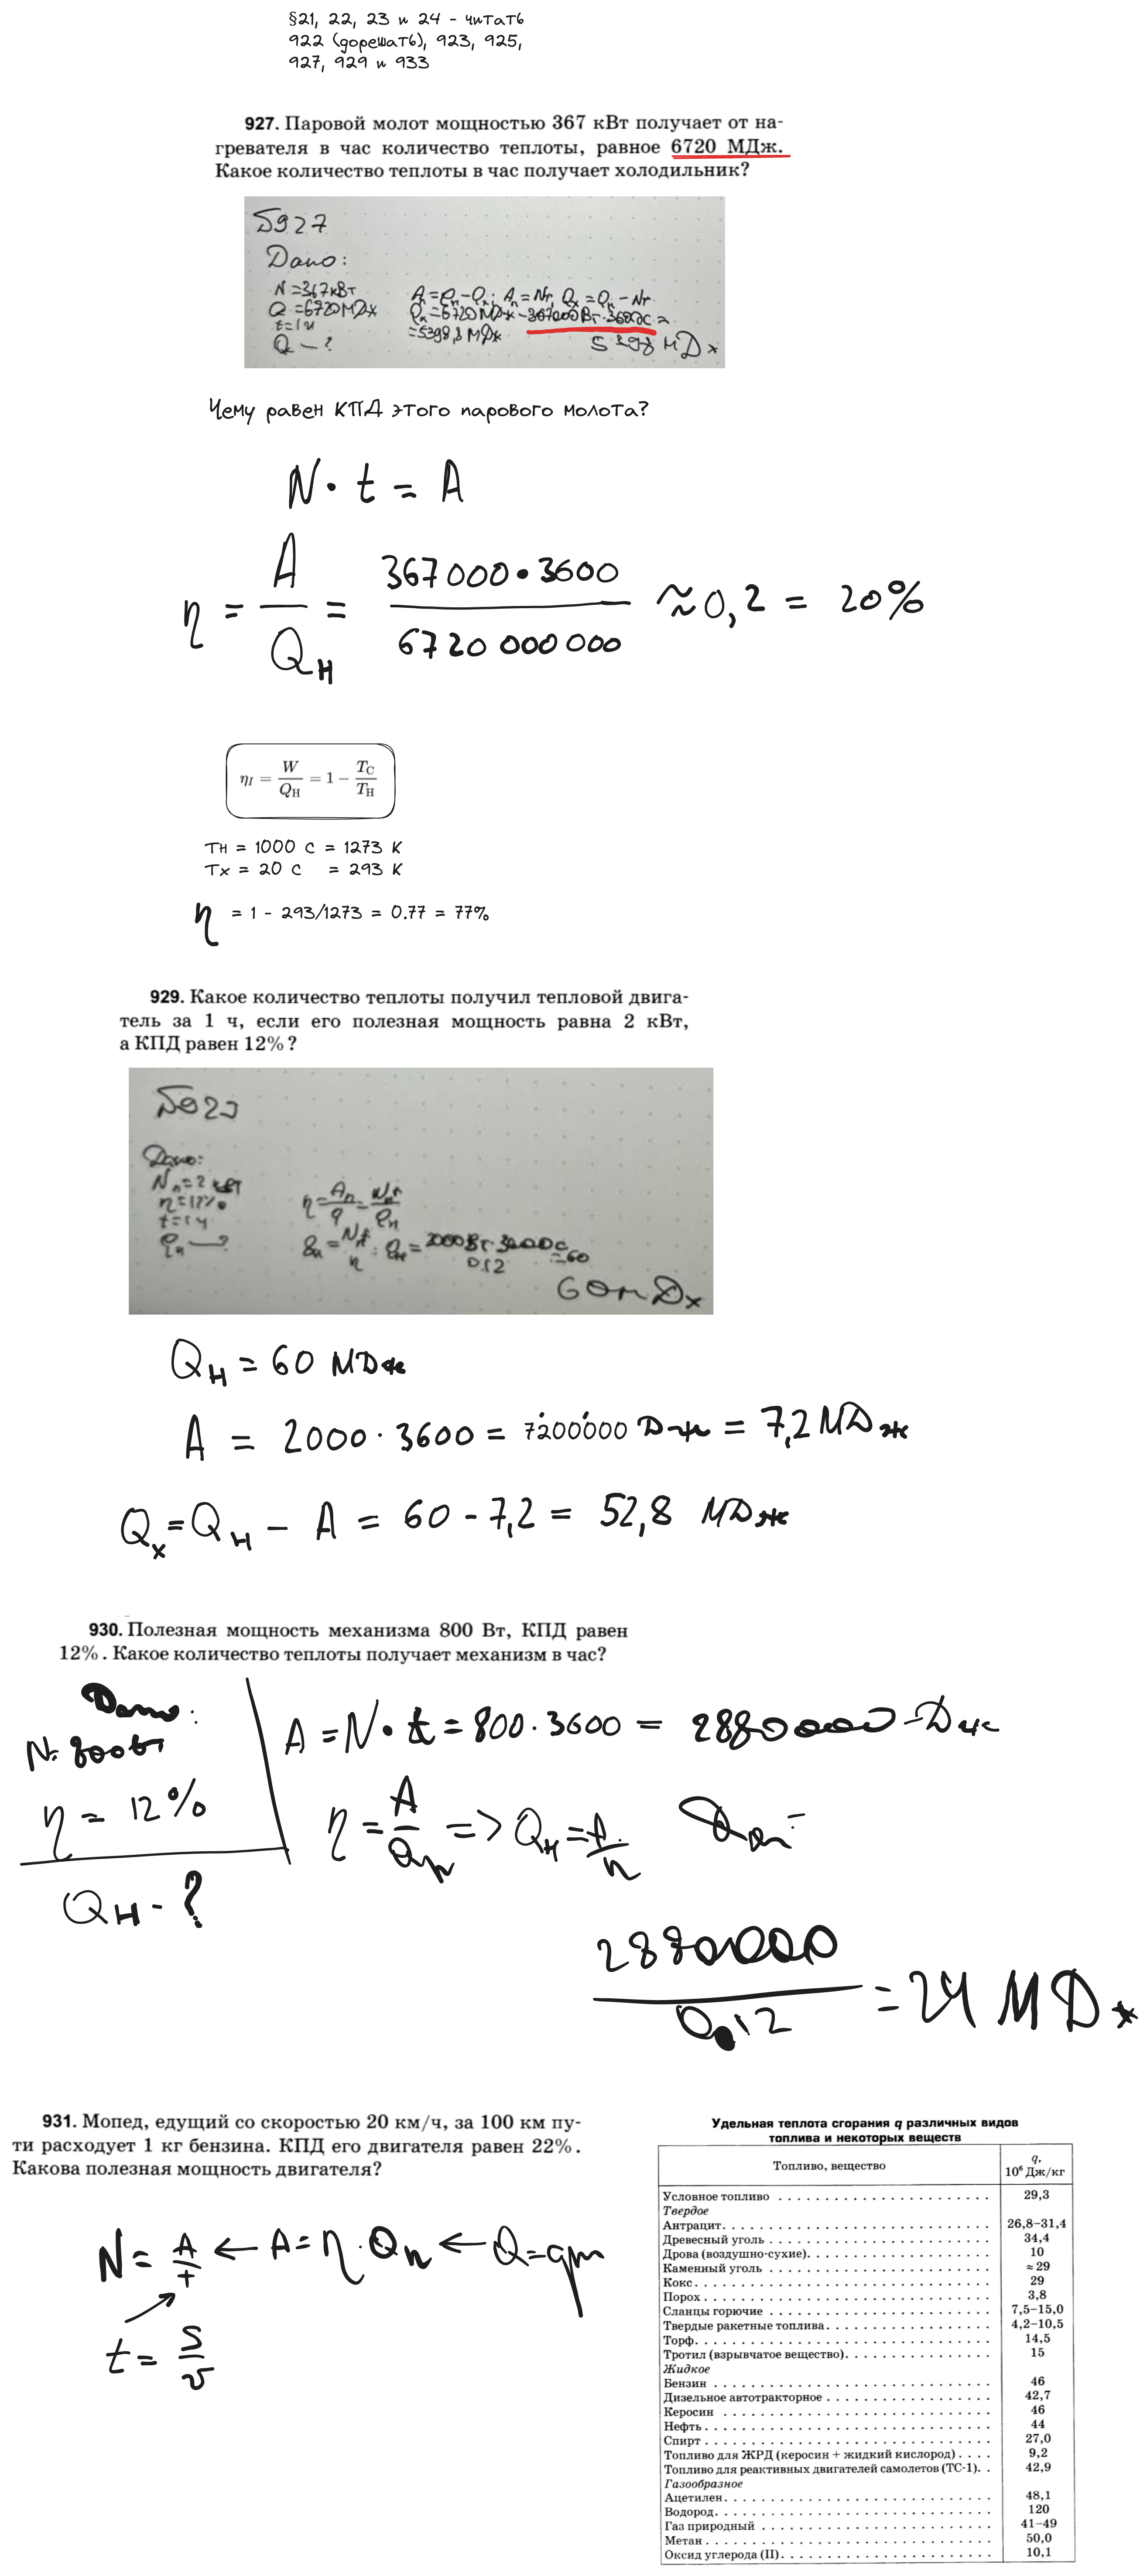 §21, 22, 23 и 24 - читать
922 (дорешать), 923, 925,
927, 929 и 933
927. Паровой молот мощностью 367 кВт получает от на-
гревателя в час количество теплоты, равное 6720 МДж.
Какое количество теплоты в час получает холодильник?
927
Дано:
N = 367 кВт
Q = 6720 МДж
t = 1 ч
Q — ?
Aп = Qн - Qх; Aп = Nt, Qх = Qн - Nt
= 6720 МДж - 367000 Вт · 3600с =
= 5398,8 МДж
5398 МДж
Чему равен КПД этого парового молота?
N · t = A
η = A / Qн = 367 000 · 3600 / 6720 000 000 ≈ 0,2 = 20%
ηI = W / QH = 1 − TC / TH
Tн = 1000 C = 1273 K
Tx = 20 C = 293 K
η = 1 - 293/1273 = 0.77 = 77%
929. Какое количество теплоты получил тепловой двига-
тель за 1 ч, если его полезная мощность равна 2 кВт,
а КПД равен 12%?
Дано:
Nп = 2 кВт
η = 12%
t = 1 ч
Qн — ?
60 мДж
Qн = 60 МДж
A = 2000 · 3600 = 7200000 Дж = 7,2 МДж
Qх = Qн - A = 60 - 7,2 = 52,8 МДж
930. Полезная мощность механизма 800 Вт, КПД равен
12%. Какое количество теплоты получает механизм в час?
Дано:
N = 800 Вт
η = 12%
Qн - ?
A = N · t = 800 · 3600 = 2880000 Дж
η = A / Qн => Qн = A / η
2880000 / 0,12 = 24 МДж
931. Мопед, едущий со скоростью 20 км/ч, за 100 км пу-
ти расходует 1 кг бензина. КПД его двигателя равен 22%.
Какова полезная мощность двигателя?
N = A / t ← A = η · Qн ← Q = qm
t = S / v
Удельная теплота сгорания q различных видов
топлива и некоторых веществ
Топливо, вещество q, 10⁶ Дж/кг
Условное топливо 29,3
Твердое
Антрацит 26,8–31,4
Древесный уголь 34,4
Дрова (воздушно-сухие) 10
Каменный уголь ≈29
Кокс 29
Порох 3,8
Сланцы горючие 7,5–15,0
Твердые ракетные топлива 4,2–10,5
Торф 14,5
Тротил (взрывчатое вещество) 15
Жидкое
Бензин 46
Дизельное автотракторное 42,7
Керосин 46
Нефть 44
Спирт 27,0
Топливо для ЖРД (керосин + жидкий кислород) 9,2
Топливо для реактивных двигателей самолетов (ТС-1) 42,9
Газообразное
Ацетилен 48,1
Водород 120
Газ природный 41–49
Метан 50,0
Оксид углерода (II) 10,1